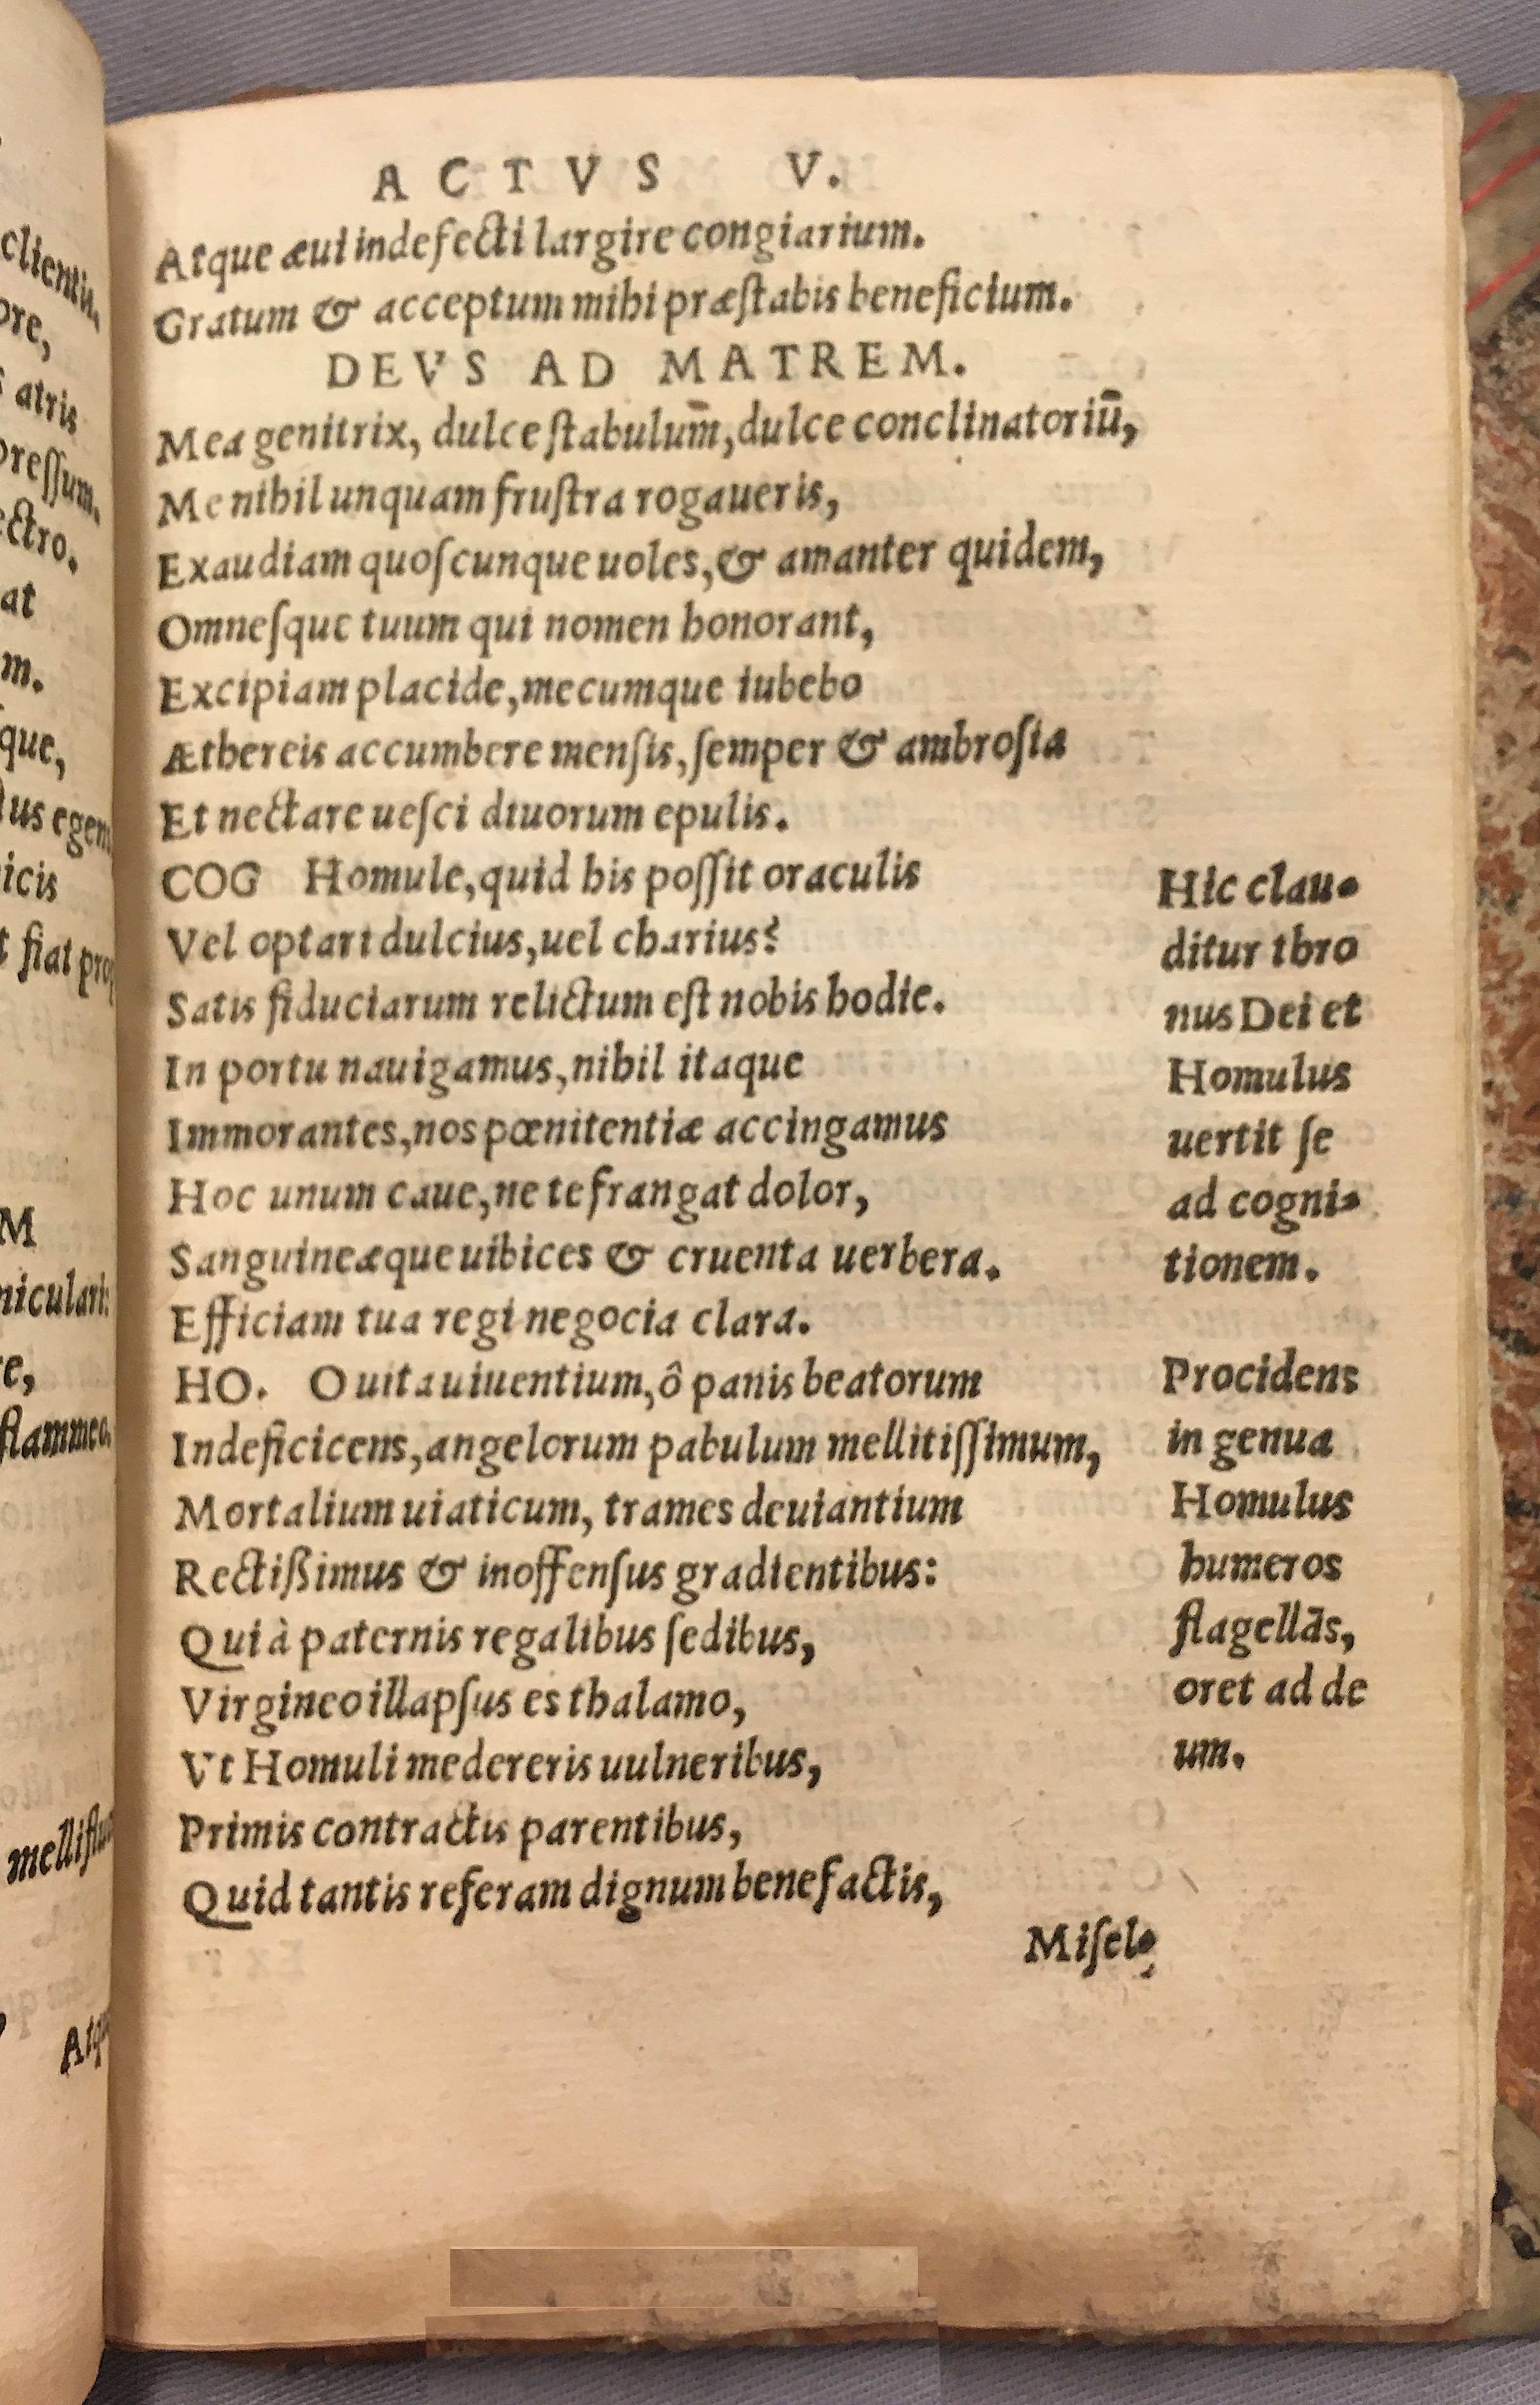 ACTVS V.
Atque æui indefecti largire congiarium.
Gratum & acceptum mihi præſtabis beneficium.
DEVS AD MATREM.
Mea genitrix, dulce ſtabulum̄, dulce conclinatoriū,
Me nihil unquam fruſtra rogaueris,
Exaudiam quoſcunque uoles, & amanter quidem,
Omneſque tuum qui nomen honorant,
Excipiam placide, mecumque iubebo
Æthereis accumbere menſis, ſemper & ambroſia
Et nectare ueſci diuorum epulis.
COG Homule, quid his poſſit oraculis
Vel optari dulcius, uel charius?
Satis fiduciarum relictum eſt nobis hodie.
In portu nauigamus, nihil itaque
Immorantes, nos pœnitentiæ accingamus
Hoc unum caue, ne te frangat dolor,
Sanguineæque uibices & cruenta uerbera.
Efficiam tua regi negocia clara.
HO. O uita uiuentium, ô panis beatorum
Indeficicens, angelorum pabulum mellitiſſimum,
Mortalium uiaticum, trames deuiantium
Rectißimus & inoffenſus gradientibus:
Qui à paternis regalibus ſedibus,
Virgineo illapſus es thalamo,
Vt Homuli medereris uulneribus,
Primis contractis parentibus,
Quid tantis referam dignum benefactis,
Miſel-
Hic clau-
ditur thro
nus Dei et
Homulus
uertit ſe
ad cogni-
tionem.
Procidens
in genua
Homulus
humeros
flagellās,
oret ad de
um.